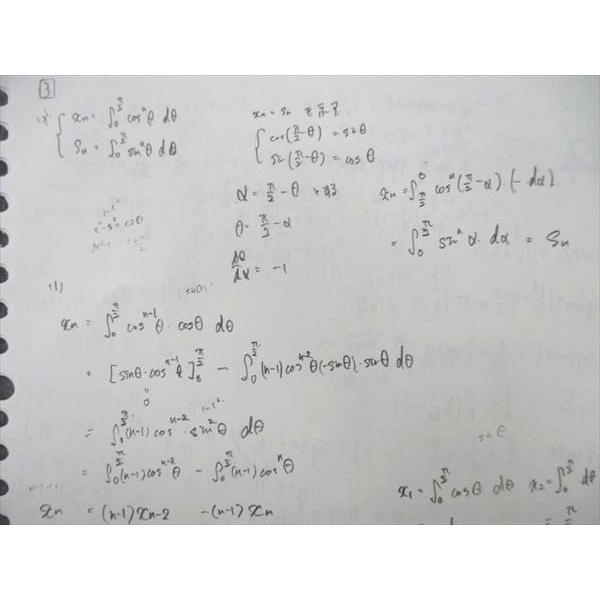 3
※ { xn = ∫₀^{π/2} cosⁿθ dθ
Sn = ∫₀^{π/2} sinⁿθ dθ
xn = Sn を示す
{ cos(π/2 - θ) = sinθ
sin(π/2 - θ) = cosθ
α = π/2 - θ とする
θ = π/2 - α
dθ/dα = -1
xn = ∫_{π/2}^0 cosⁿ(π/2 - α)・(-dα)
= ∫₀^{π/2} sinⁿα・dα = Sn
(1)
(sinθ)'
xn = ∫₀^{π/2} cos^{n-1}θ・cosθ dθ
= [sinθ・cos^{n-1}θ]₀^{π/2} - ∫₀^{π/2} (n-1)cos^{n-2}θ(-sinθ)・sinθ dθ
"
0
= ∫₀^{π/2} (n-1)cos^{n-2}・sin²θ dθ
= ∫₀^{π/2} (n-1)cos^{n-2}θ - ∫₀^{π/2} (n-1)cosⁿθ
xn = (n-1)xn-2 - (n-1)xn
sinθ
x₁ = ∫₀^{π/2} cosθ dθ x₂ = ∫₀^{π/2} dθ